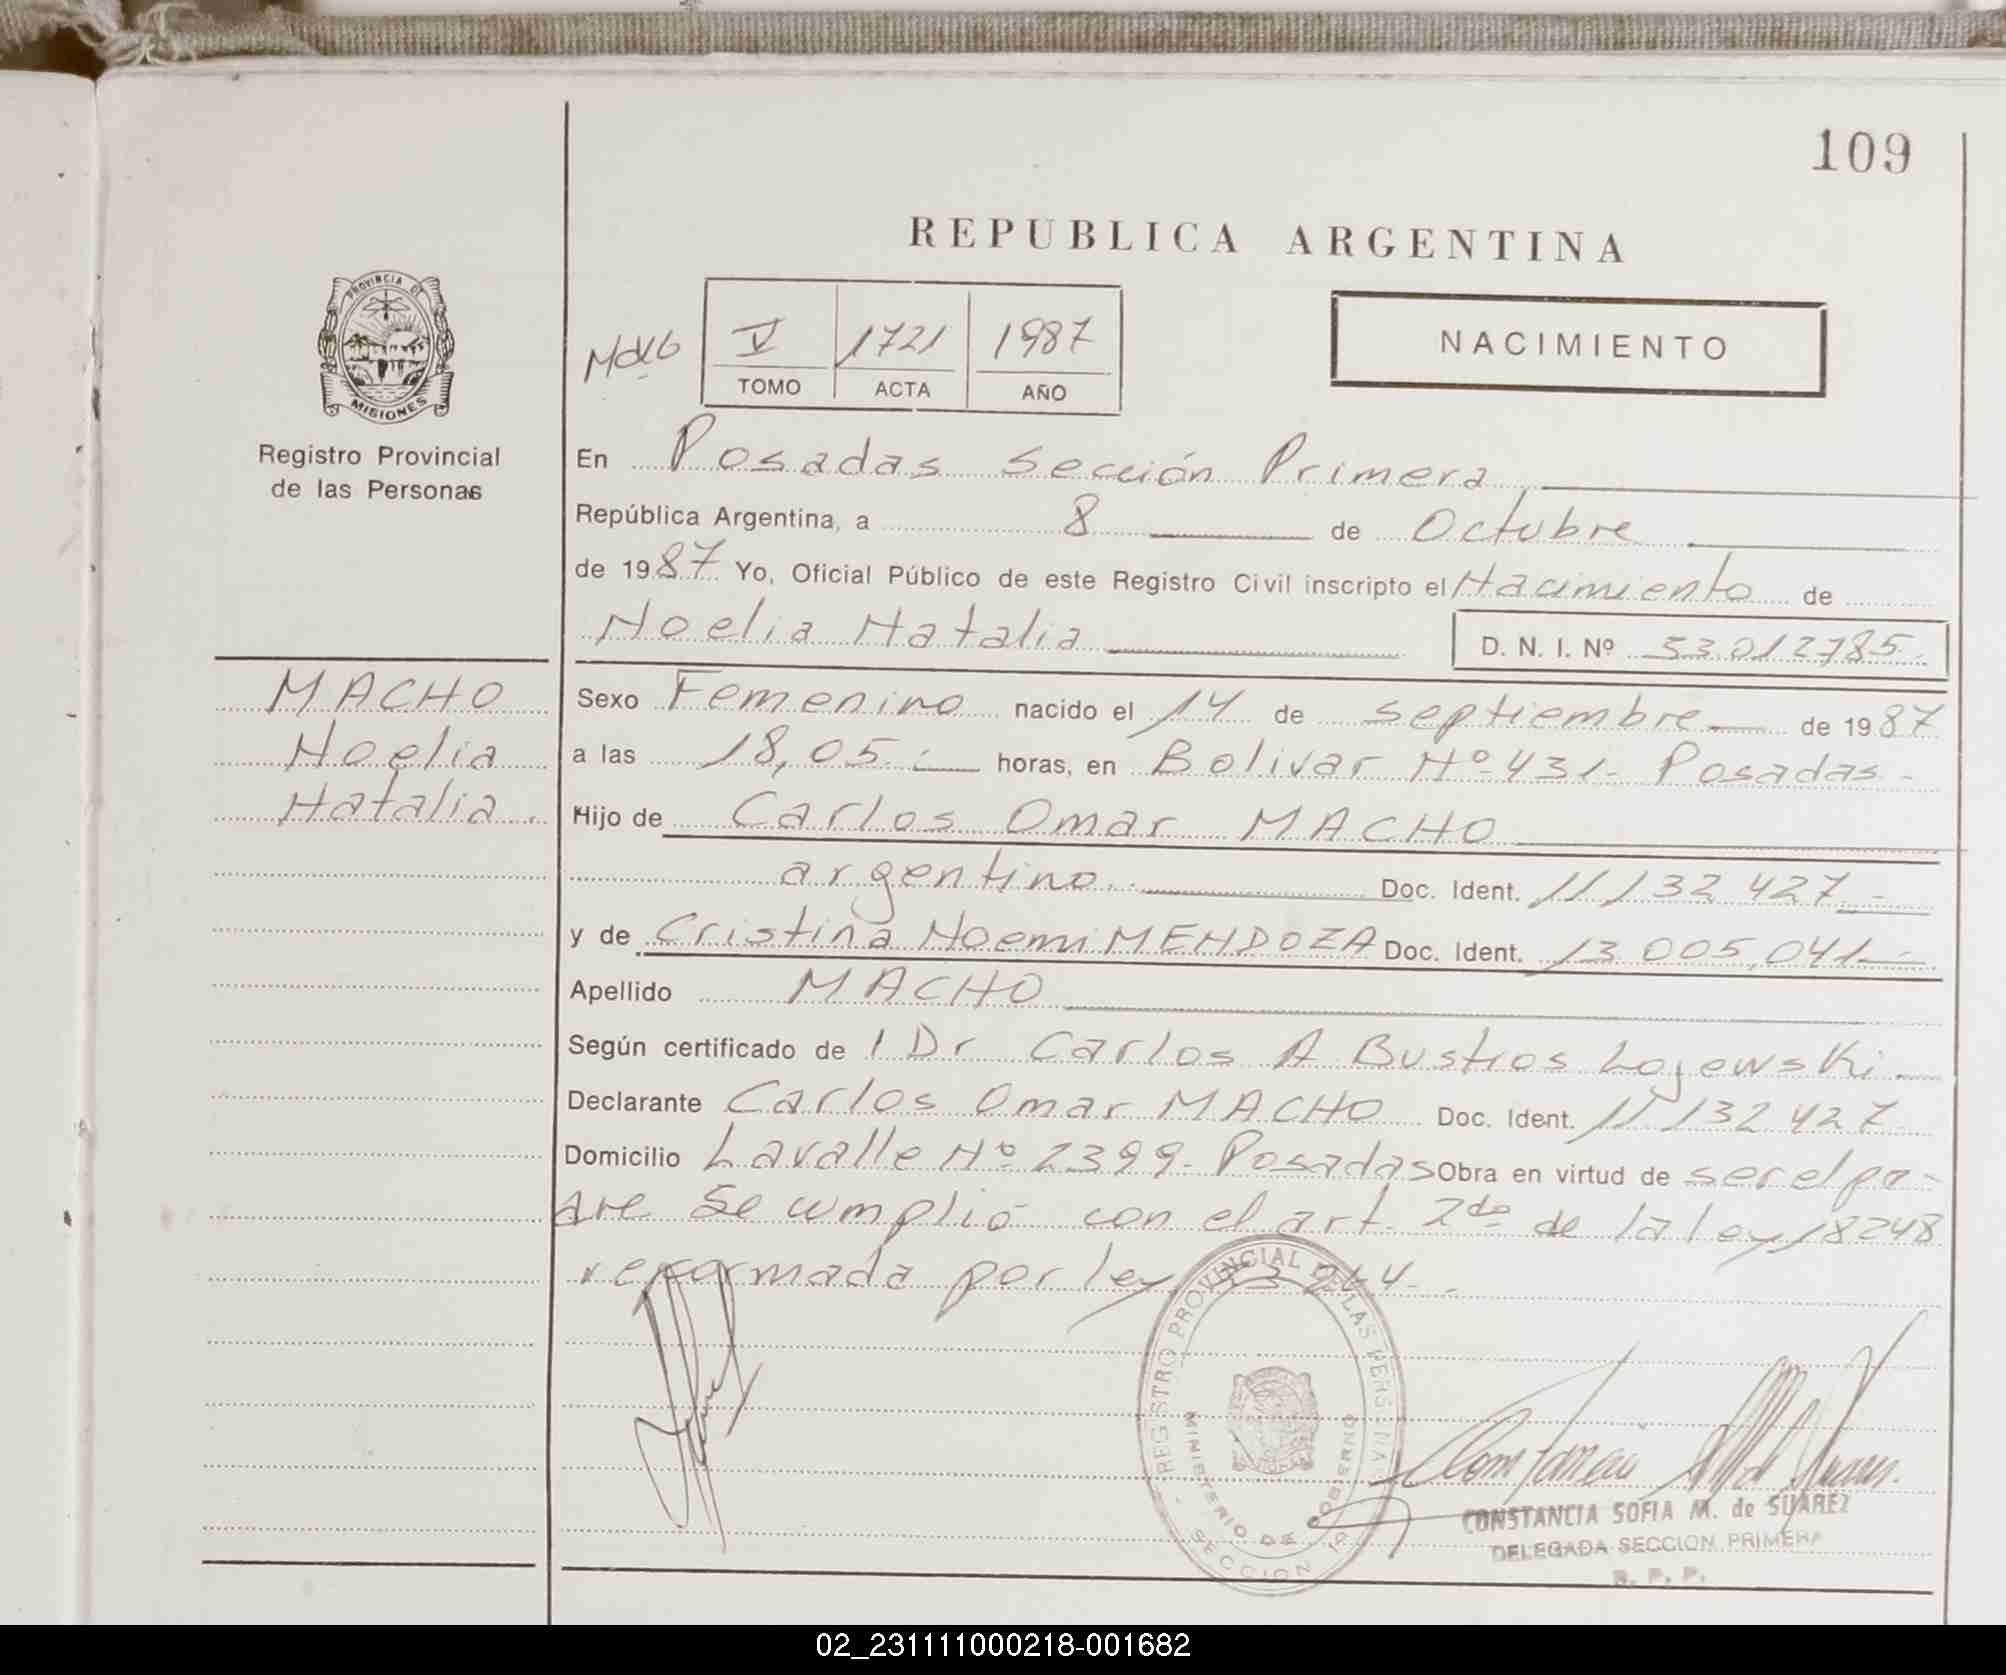 109
REPUBLICA ARGENTINA
PROVINCIA DE
MISIONES
Registro Provincial
de las Personas
V 1721 1987
TOMO ACTA AÑO
NACIMIENTO
En Posadas Sección Primera
República Argentina, a 8 de Octubre
de 1987 Yo, Oficial Público de este Registro Civil inscripto el Nacimiento de
Noelia Natalia D. N. I. Nº 33.012.785
MACHO
Noelia
Natalia.
Sexo Femenino nacido el 14 de septiembre de 1987
a las 18,05.- horas, en Bolivar Nº 431- Posadas-
Hijo de Carlos Omar MACHO
argentino. Doc. Ident. 11132427-
y de Cristina Noemi MENDOZA Doc. Ident. 13.005.041-
Apellido MACHO
Según certificado de l Dr Carlos A Bustros Lojewski-
Declarante Carlos Omar MACHO Doc. Ident. 11.132.427
Domicilio Lavalle Nº 2399- Posadas Obra en virtud de ser el pa-
dre Se cumplió con el art. 2do de la ley 18248
reformada por ley 23264-
REGISTRO PROVINCIAL DE LAS PERSONAS
MINISTERIO DE GOBIERNO
SECCION 1ª
CONSTANCIA SOFIA M. de SUAREZ
DELEGADA SECCION PRIMERA
R. P. P.
02_231111000218-001682